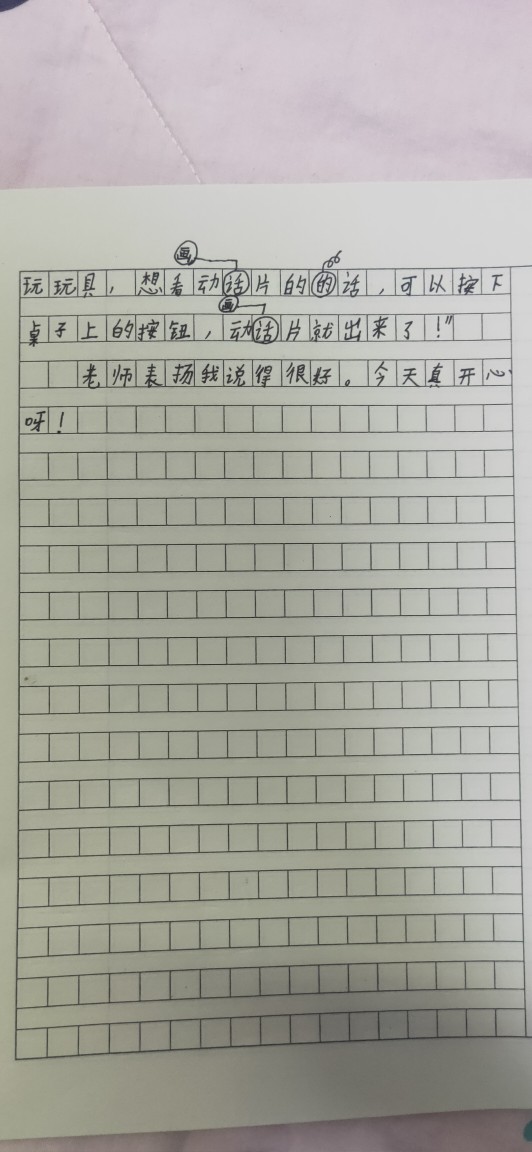 画
玩玩具，想看动话片的的话，可以按下
画
桌子上的按钮，动话片就出来了！”
老师表扬我说得很好。今天真开心
呀！